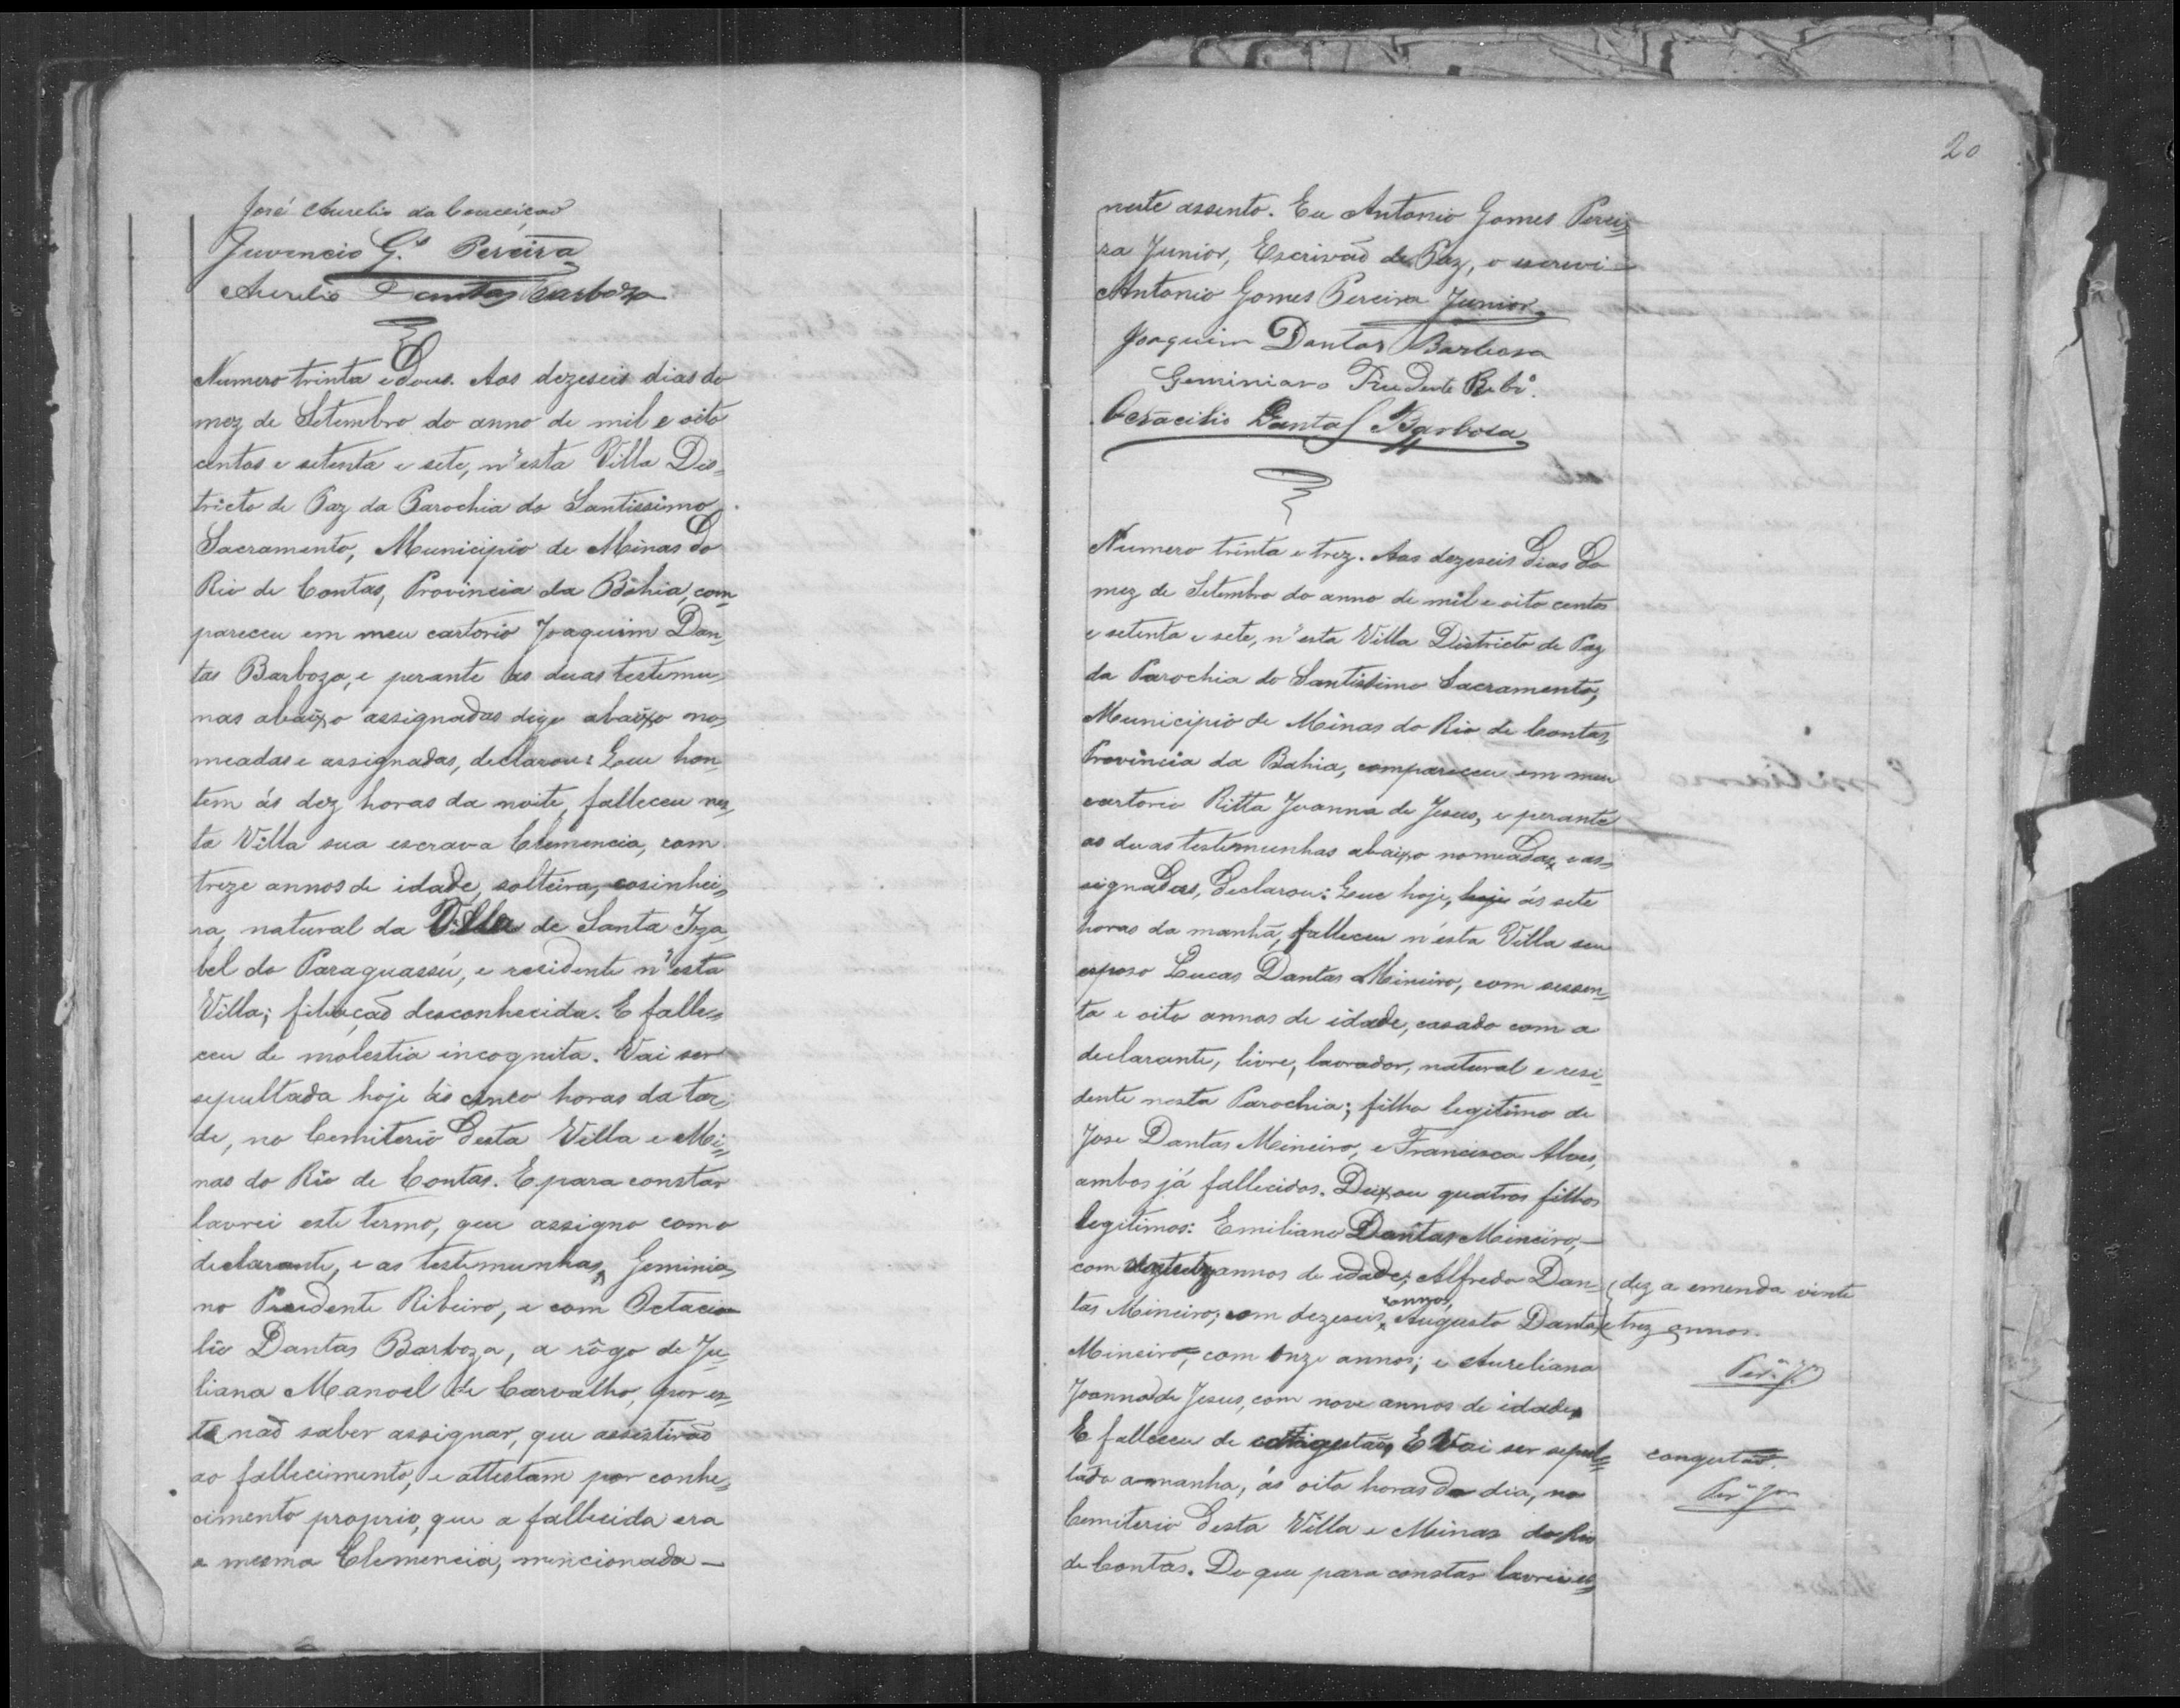 José Aurelio da Conceiçaõ
Juvencio G.s Pereira
Aurelio Dantas Barboza
Numero trinta e dous. Aos dezeseis dias do
mez de Setembro do anno de mil e oito
centos e setenta e sete, n'esta Villa Dis-
tricto de Paz da Parochia do Santissimo
Sacramento, Municipio de Minas do
Rio de Contas, Provincia da Bahia, com-
pareceu em meu cartorio Joaquim Dan-
tas Barboza, e perante as duas testemu-
nas abaixo assignadas digo abaixo no-
meadas e assignadas, declarou: Que hon-
tem ás dez horas da noite, falleceu nes-
ta Villa sua escrava Clemencia, com
treze annos de idade, solteira, cosinhei-
ra, natural da Villa de Santa Iza-
bel do Paraguassú, e residente n'esta
Villa; filiaçaõ desconhecida. E falle-
ceu de molestia incognita. Vai ser
sepultada hoje ás cinco horas da tar-
de, no Cemiterio desta Villa e Mi-
nas do Rio de Contas. E para constar
lavrei este termo, que assigno com o
declarante, e as testemunhas, Geminia-
no Prudente Ribeiro, e com Octaci-
lio Dantas Barboza, a rôgo de Ju-
liana Manoel de Carvalho, por es-
ta naõ saber assignar, que assistiraõ
ao fallecimento, e attestam por conhe-
cimento proprio, que a fallecida era
a mesma Clemencia, mencionada —
20
neste assento. Eu Antonio Gomes Perei-
ra Junior, Escrivaõ de Paz, o escrevi —
Antonio Gomes Pereira Junior
Joaquim Dantas Barbosa
Geminiano Prudente Rib.o
Octacilio Dantas Barbosa
Numero trinta e trez. Aos dezeseis dias do
mez de Setembro do anno de mil e oito centos
e setenta e sete, n'esta Villa Districto de Paz
da Parochia do Santissimo Sacramento,
Municipio de Minas do Rio de Contas,
Provincia da Bahia, compareceu em meu
cartorio Ritta Joanna de Jesus, e perante
as duas testemunhas abaixo nomeadas, e as-
signadas, declarou: Que hoje, hoje ás sete
horas da manhã, falleceu n'esta Villa seu
esposo Lucas Dantas Mineiro, com sessen-
ta e oito annos de idade, casado com a
declarante, livre, lavrador, natural e resi-
dente nesta Parochia; filho legitimo de
Jose Dantas Mineiro, e Francisca Alves,
ambos já fallecidos. Deixou quatros filhos
legitimos: Emiliano Dantas Mineiro, —
com annos de idade; Alfredo Dan- (dez a emenda vinte
tas Mineiro, com dezeseis annos, Augusto Dantas e trez annos.
Mineiro, com onze annos; e Aureliana
Per.a J.or
Joanna de Jesus, com nove annos de idade.
E falleceu de E Vai ser sepul- congestaõ.
tado amanha, ás oito horas do dia, no
Per.a J.or
Cemiterio desta Villa e Minas do Rio
de Contas. Do que para constar lavrei es-